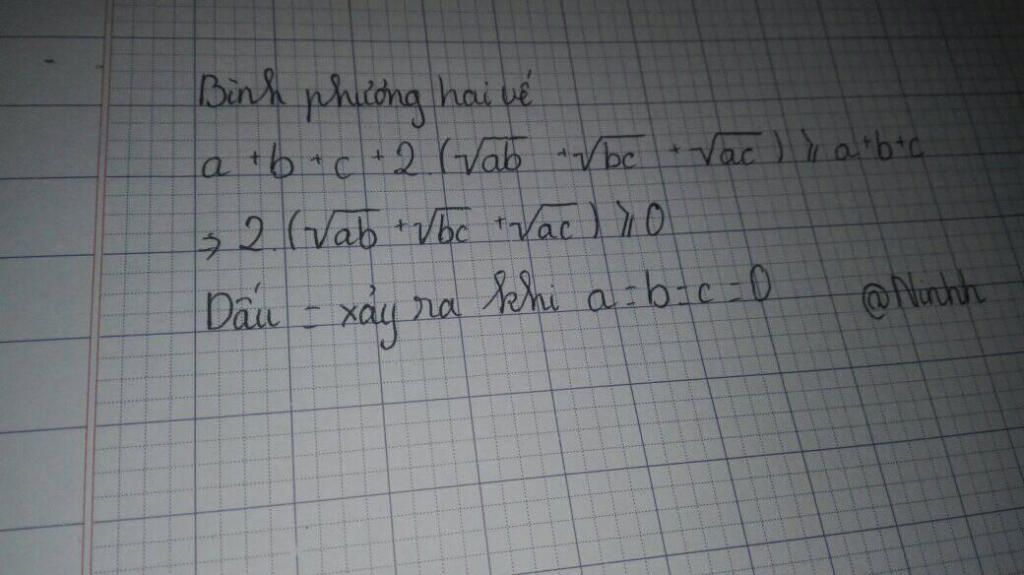 Bình phương hai vế
a + b + c + 2.(√ab + √bc + √ac) ⩾ a+b+c
⇒ 2.(√ab + √bc + √ac) ⩾ 0
Dấu = xảy ra khi a = b = c = 0 @Ninhh